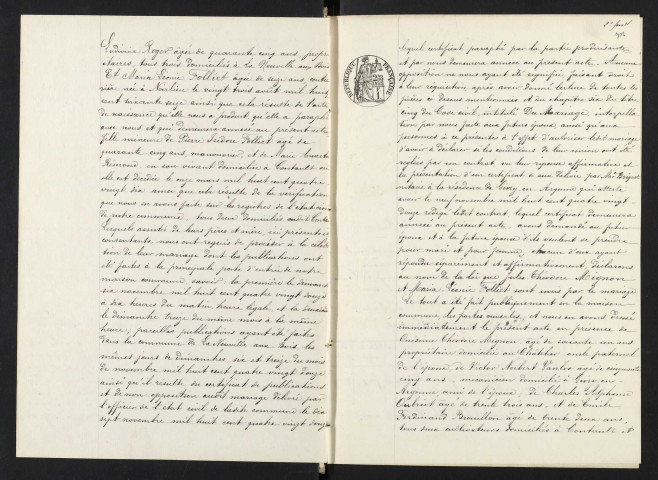 Ludivine Roger âgée de quarante cinq ans, propri
étaires, tous trois domiciliés à La Neuville aux Bois
Et Maria Léonie Folliet âgée de seize ans, rentière
née à le vingt trois août mil huit
cent soixante seize ainsi que cela résulte de l'acte
de naissance qu'elle nous a produit, qu'elle a paraphé
avec nous et qui demeurera annexé au présent acte
fille mineure de Pierre Isidore Folliet âgé de
quarante cinq ans, manouvrier et de Marie
en son vivant domiciliée à Contault où
elle est décédée le onze mars mil huit cent quatre
vingt dix ainsi que cela résulte de la vérification
que nous en avons faite sur les registres de l'état civil
de notre commune, tous deux domiciliés audit Contault
Lesquels assistés de leurs père et mère, ici présents et
consentants, nous ont requis de procéder à la célébra
tion de leur mariage dont les publications ont
été faites à la principale porte d'entrée de notre
maison commune, savoir : la première le dimanche
six novembre mil huit cent quatre vingt douze
à dix heures du matin heure légale, et la deuxième
le dimanche treize du même mois à la même
heure, pareilles publications ayant été faites
dans la commune de La Neuville aux Bois les
mêmes jours de dimanches, six et treize du mois
de novembre mil huit cent quatre vingt douze
ainsi qu'il résulte du certificat de publications
et de non opposition audit mariage délivré par
l'officier de l'état civil de ladite commune le dix
sept novembre mil huit cent quatre vingt douze
RÉPUBLIQUE FRANÇAISE
lequel certificat paraphé par la partie produisante
et par nous demeurera annexé au présent acte. Aucune
opposition ne nous ayant été signifiée, faisant droit
à leur réquisition après avoir donné lecture de toutes les
pièces ci dessus mentionnées et du chapitre six du titre
cinq du Code civil, intitulé Du mariage, interpella
tion par nous faite aux futurs époux, ainsi qu'aux
personnes ici présentes à l'effet d'autoriser ledit mariage
d'avoir à déclarer si les conditions de leur union ont été
réglées par un contrat, sur leur réponse affirmative et
la présentation d'un certificat à eux délivré par Me
notaire à la résidence de Givry en Argonne qui atteste
avoir le neuf novembre mil huit cent quatre vingt
douze rédigé ledit contrat lequel certificat demeurera
annexé au présent acte, avons demandé au futur
époux et à la future épouse s'ils veulent se prendre
pour mari et pour femme, chacun d'eux ayant
répondu séparément et affirmativement, déclarons
au nom de la loi que Jules Théodore Mignon
et Maria Léonie Folliet sont unis par le mariage
Le tout a été fait publiquement en la maison
commune, les portes ouvertes, et nous en avons dressé
immédiatement le présent acte en présence de
Onésime Théodore Mignon, âgé de soixante un ans
propriétaire domicilié au Châtelier oncle paternel
de l'époux, de Victor Norbert âgé de cinquante
cinq ans, domicilié à Givry en
Argonne ami de l'époux, de Charles Alphonse
âgé de trente trois ans, et de Emile
Ferdinand Brouillon âgé de trente deux ans,
tous deux cultivateurs domiciliés à Contault et